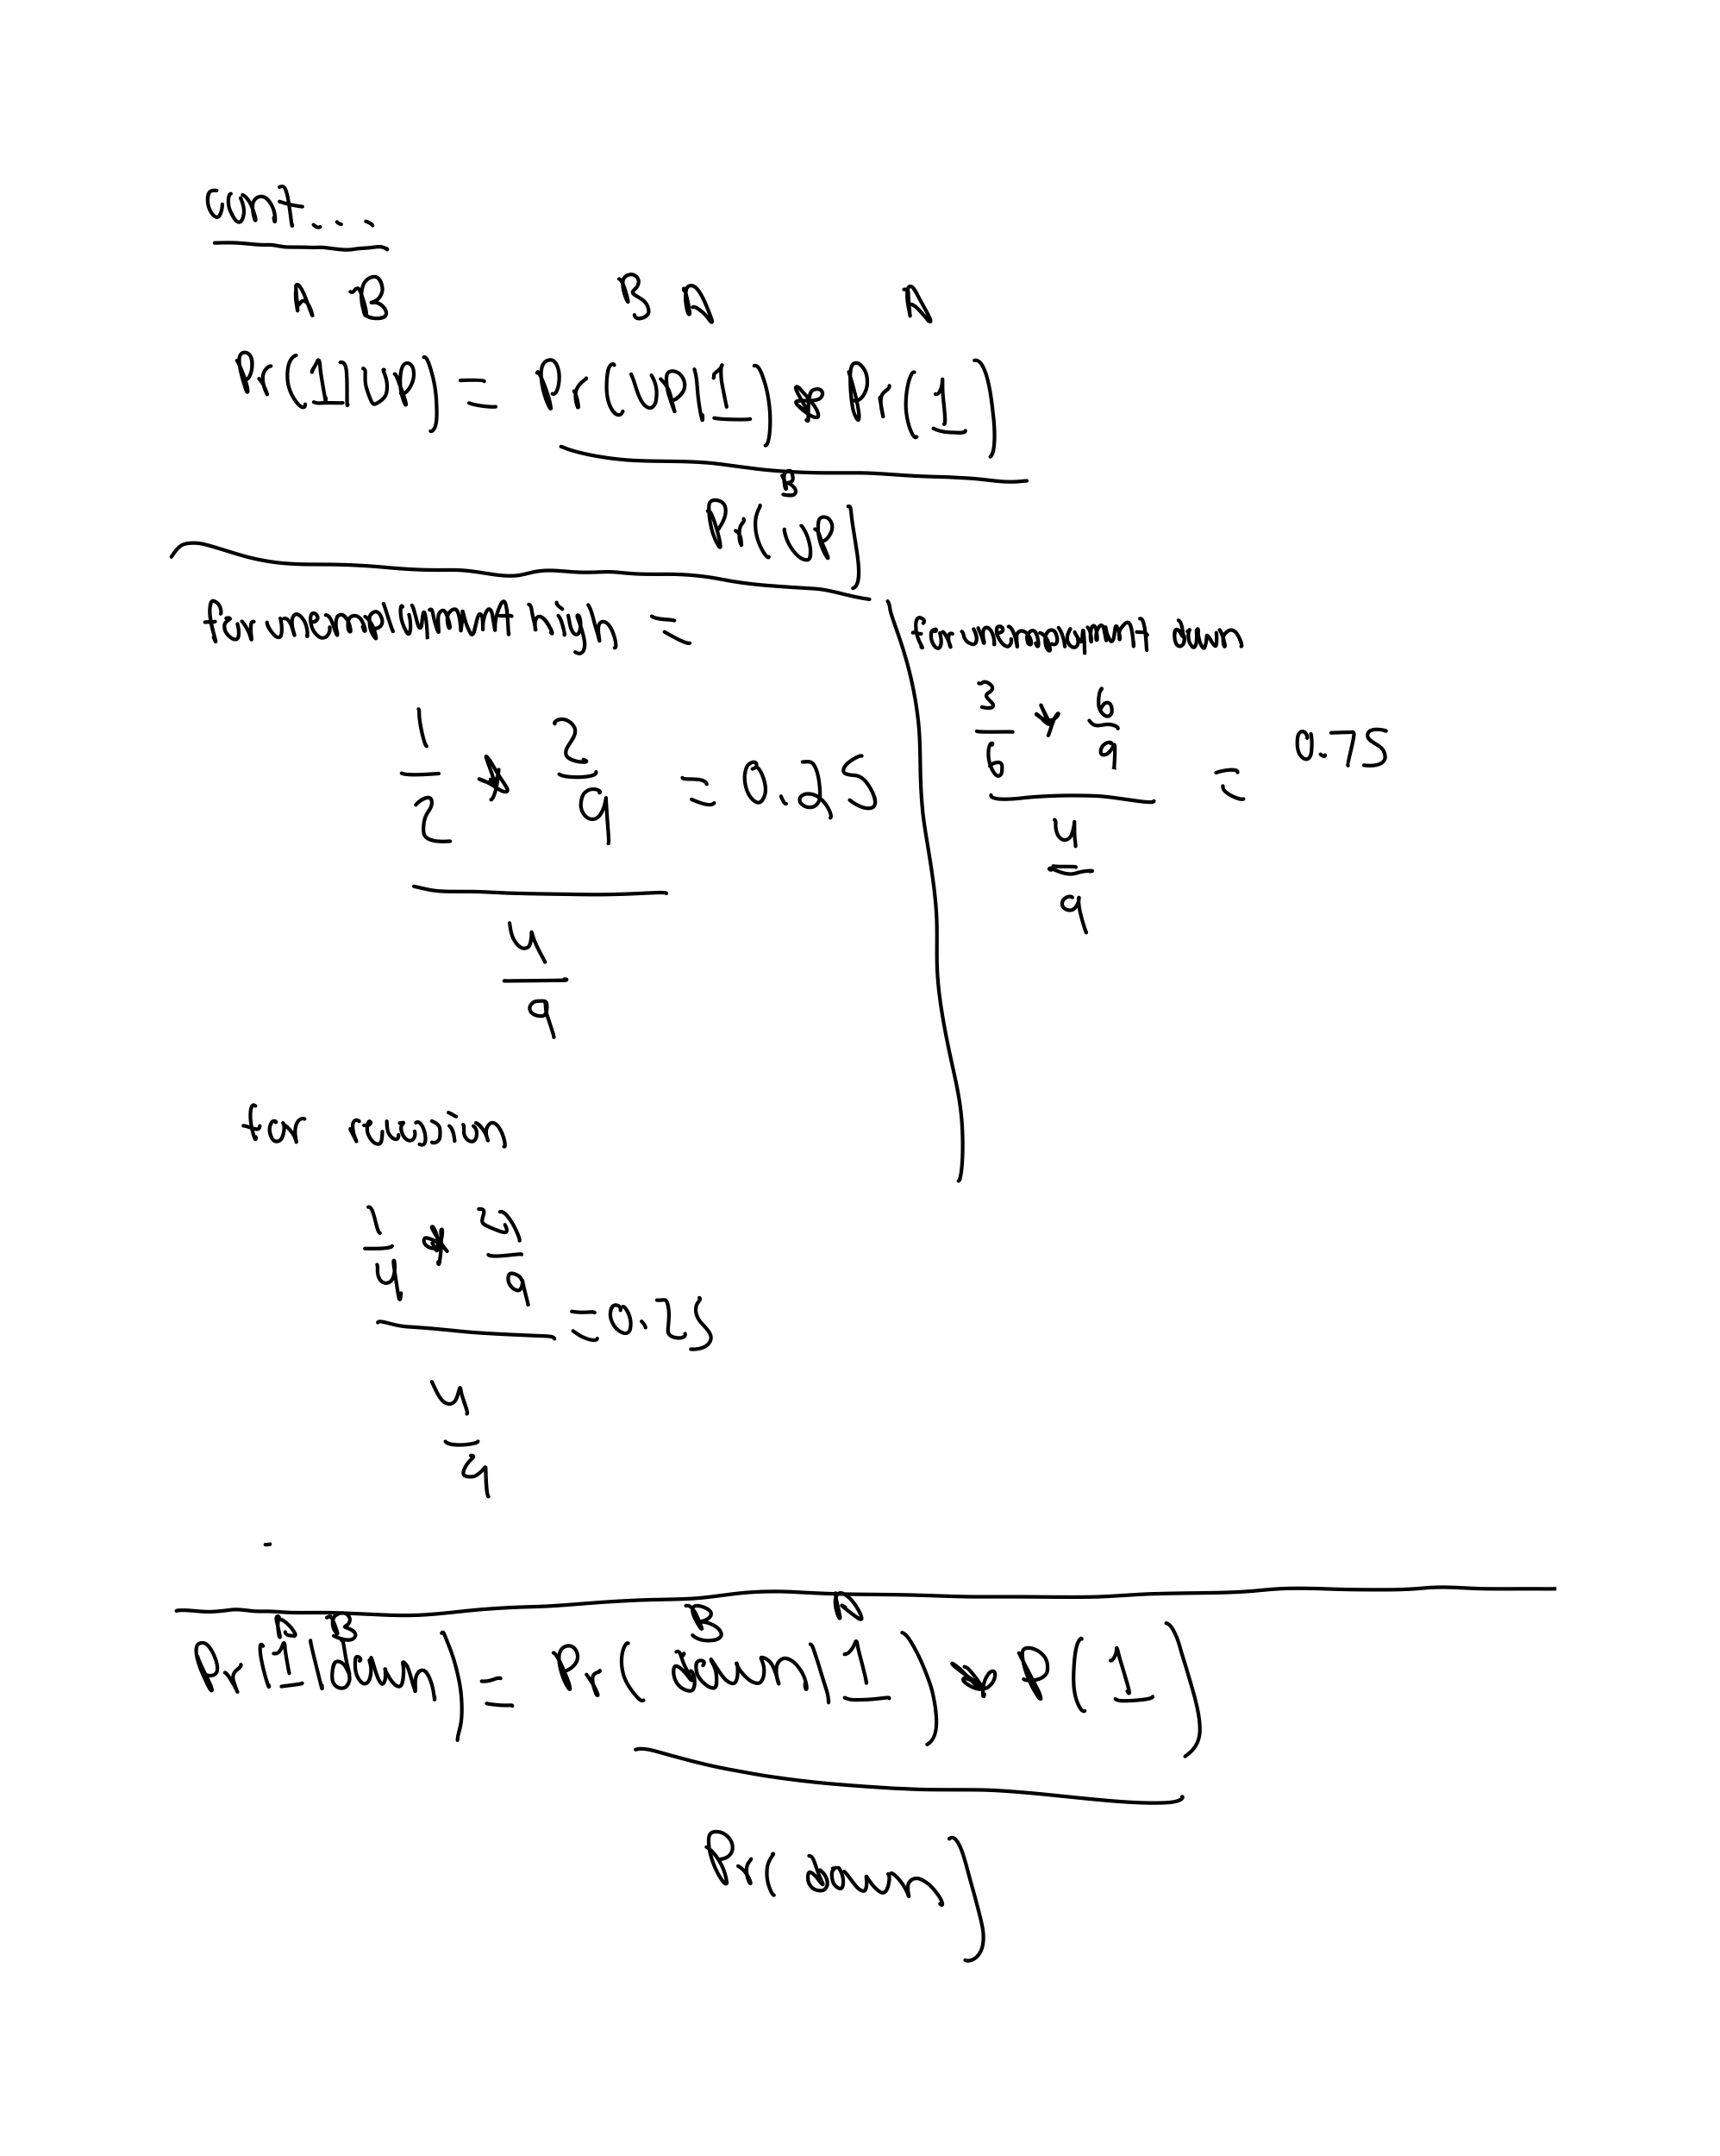 cont...
A B B A A
Pr(1|UP) = Pr(UP|1) * Pr(1)
B
Pr(UP)
for unemployment high =
1/2 * 2/9 = 0.25
4/9
for unemployment down
3/6 * 6/9 = 0.75
4/9
for recession
1/4 * 4/9 = 0.25
4/9
A B B A
Pr(1|down) = Pr(down|1) * P(1)
Pr(down)